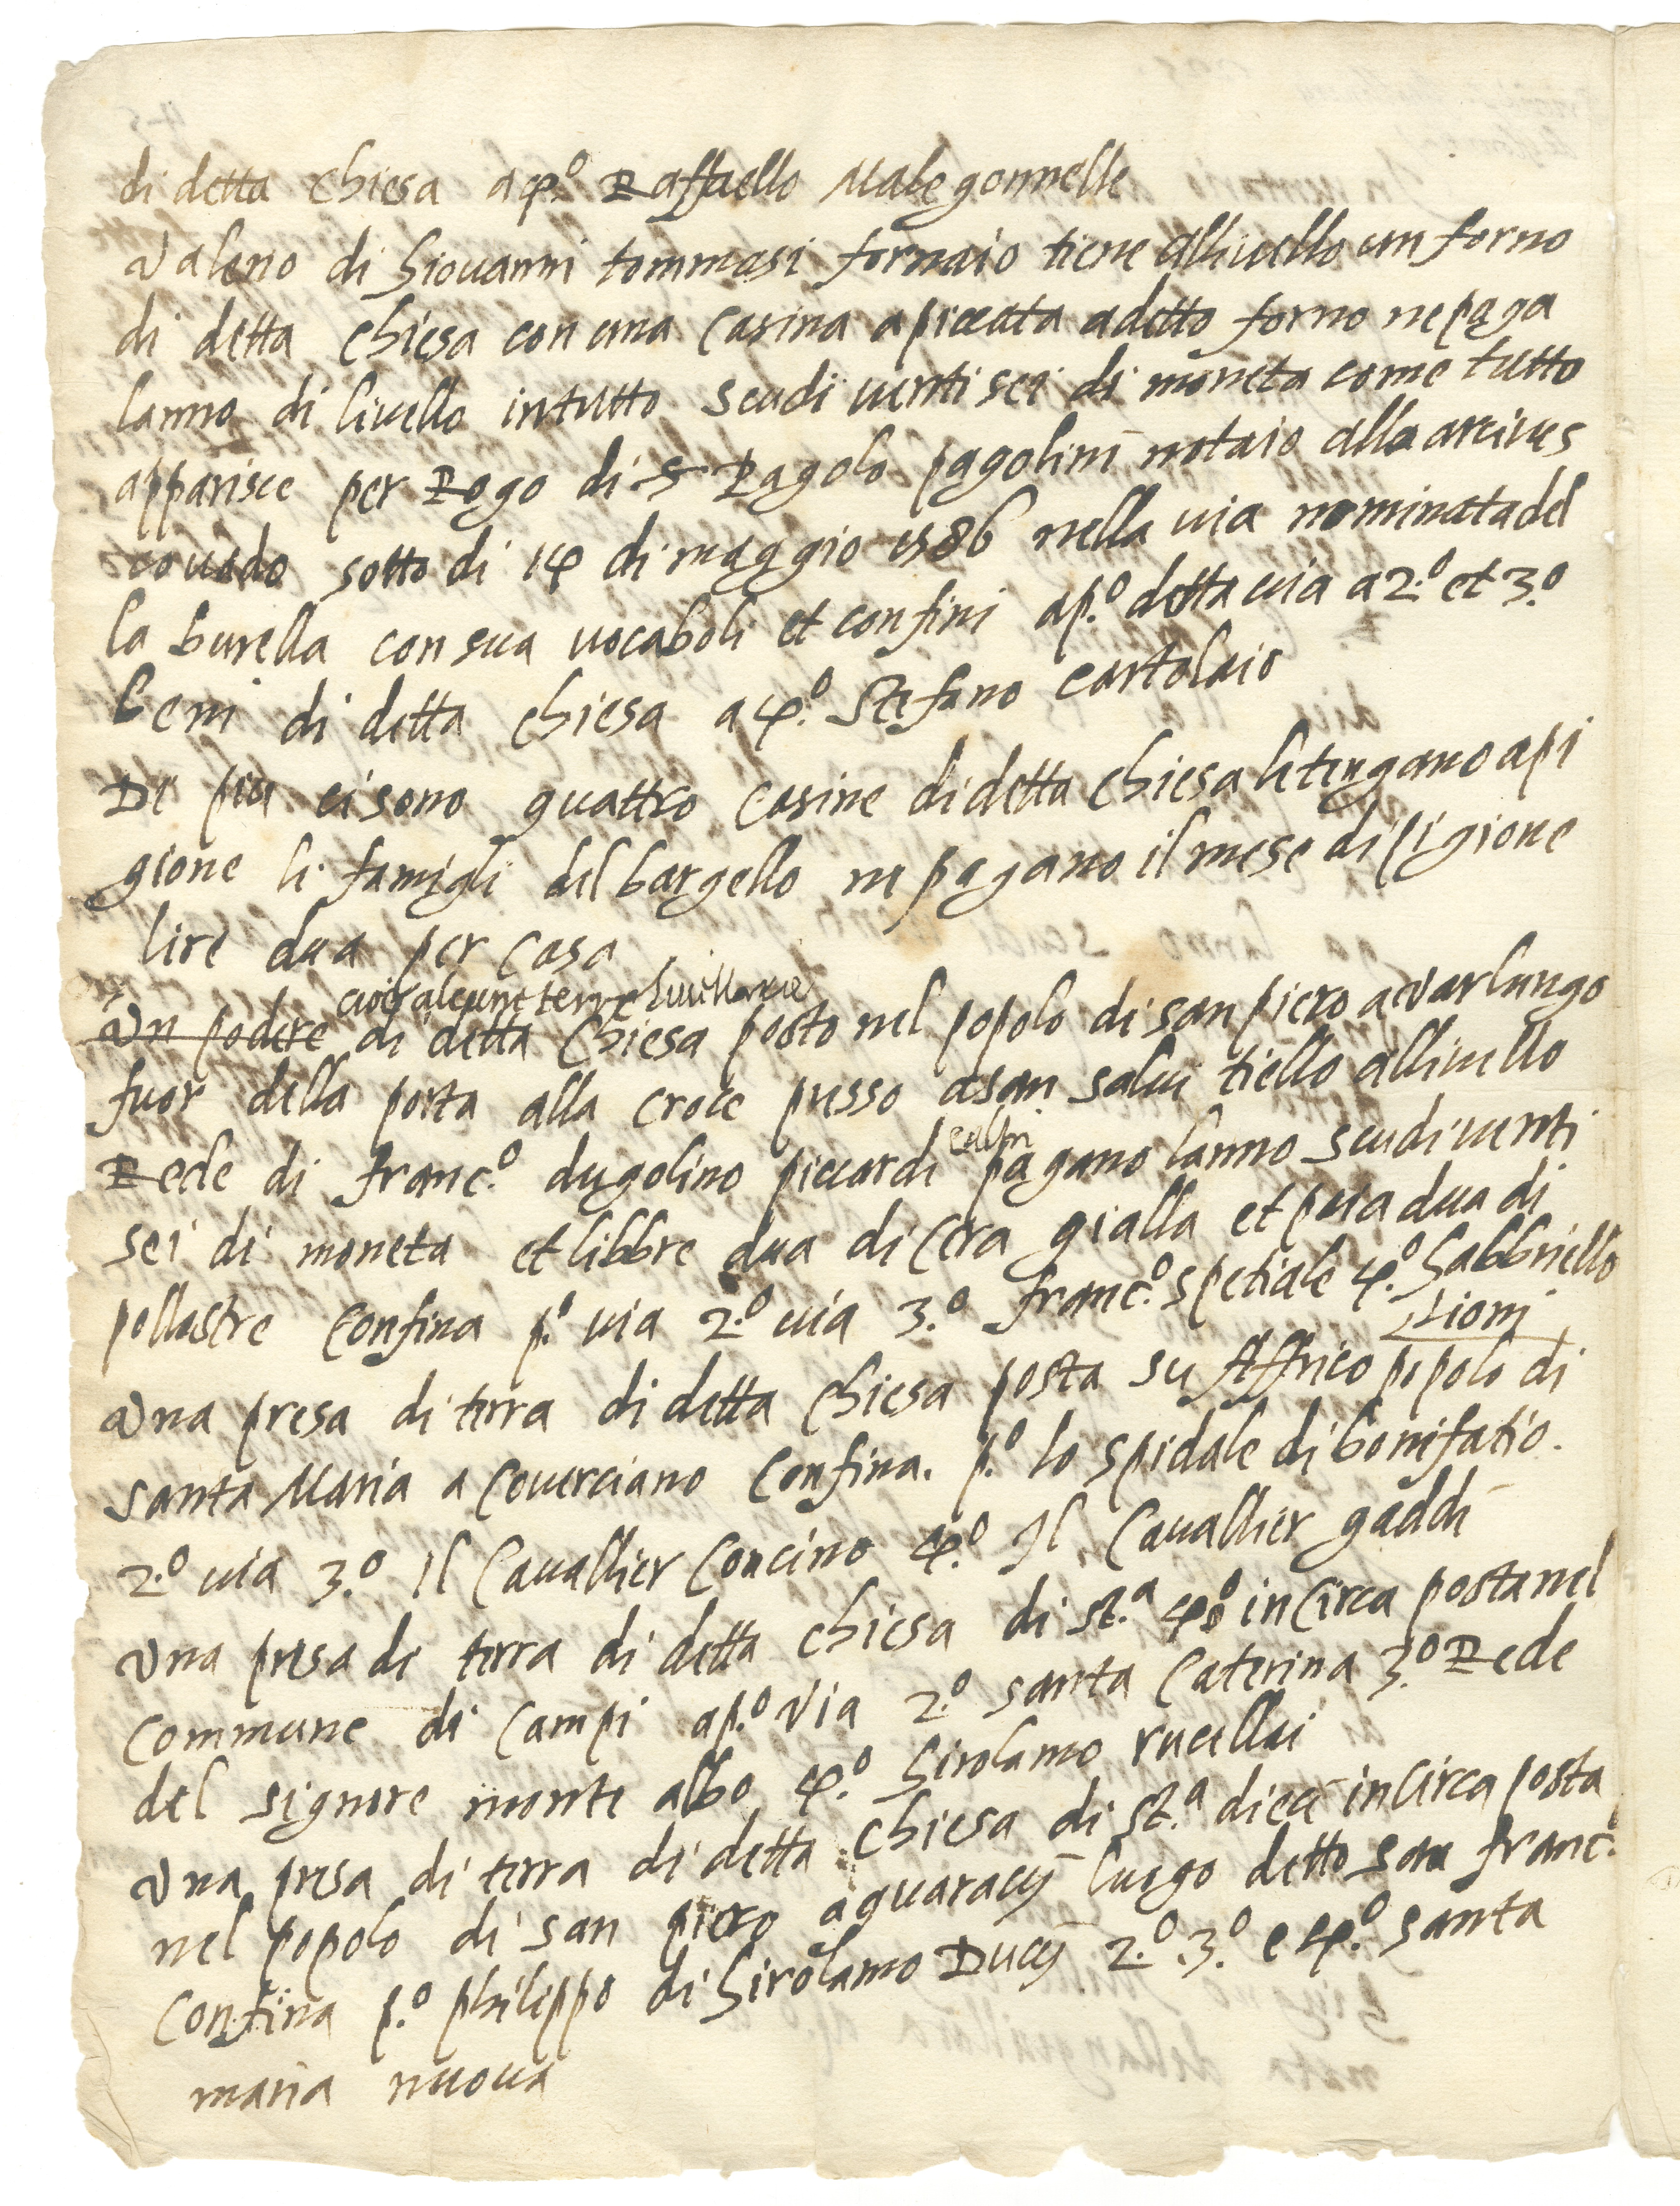 di detta chiesa a 4.º Raffaello Malegonnelle
Valerio di Giovanni tommasi fornaio tiene allivello un forno
di detta chiesa con una casina apiccata a detto forno ne paga
lanno di livello in tutto scudi venti sei di moneta come tutto
apparisce per Rogo di S Pagolo pagolini notaio all arcives
covado sotto di 14 di maggio 1586 nella via nominata del
la burella con sua vocaboli et confini a p.º detta via a 2.º et 3.º
beni di detta chiesa a 4.º Stefano cartolaio
Di piu ci sono quattro casine di detta chiesa le tengano api
gione li famigli del bargello ne pagano il mese di pigione
lire dua per casa
cioè alcune terre livellarie
Un podere di detta chiesa posto nel popolo di san piero a Varlungo
fuor della porta alla croce presso a san salvi tiello allivello
Rede di franc.º dugolino piccardi e altri pagano lanno scudi venti
sei di moneta et libbre dua di cera gialla et paia dua di
pollastre confina p.º via 2.º via 3.º franc.º spetiale 4.º Gabbriello
Zioni
Una presa di terra di detta chiesa posta su Affrico popolo di
santa Maria a Coverciano confina. p.º lo spidale di bonifatio.
2.º via 3.º Il Cavallier Concino 4.º Il Cavallier gaddi
Una presa di terra di detta chiesa di st.ª in circa posta nel
commune di Campi a p.º Via 2.º santa Caterina 3.º Rede
del signore monte albo 4.º Girolamo rucellai
Una presa di terra di detta chiesa di st.ª dieci in circa posta
nel popolo di san piero a quaracij luogo detto san franc.º
confina p.º philippo di Girolamo Ducij 2.º .3.º e 4.º santa
maria nuova